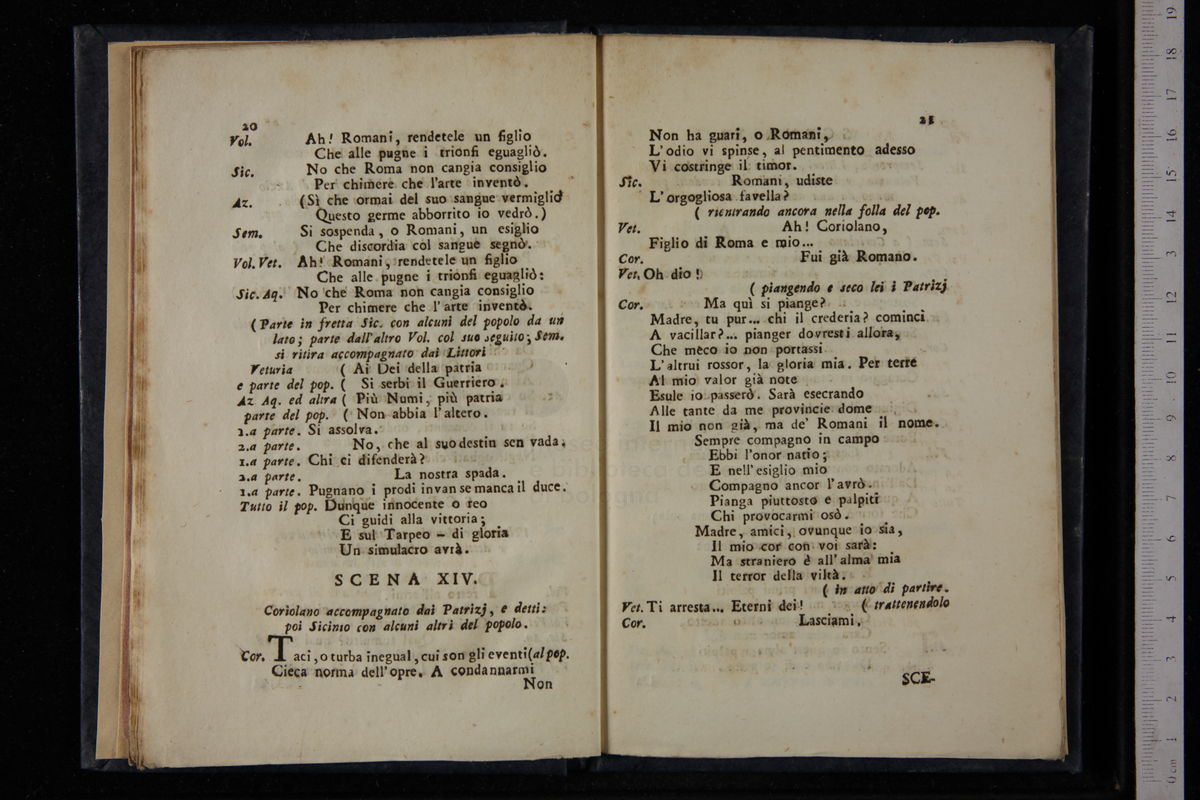 20
Vol. Ah! Romani, rendetele un figlio
Che alle pugne i trionfi eguagliò.
Sic. No che Roma non cangia consiglio
Per chimere che l'arte inventò.
Az. (Sì che ormai del suo sangue vermiglio
Questo germe abborrito io vedrò.)
Sem. Si sospenda, o Romani, un esiglio
Che discordia col sangue segnò.
Vol. Vet. Ah! Romani, rendetele un figlio
Che alle pugne i trionfi eguagliò:
Sic. Aq. No che Roma non cangia consiglio
Per chimere che l'arte inventò.
(Parte in fretta Sic. con alcuni del popolo da un
lato; parte dall'altro Vol. col suo seguito; Sem.
si ritira accompagnato dai Littori
Veturia ( Ai Dei della patria
e parte del pop. ( Si serbi il Guerriero.
Az Aq. ed altra ( Più Numi, più patria
parte del pop. ( Non abbia l'altero.
1.a parte. Si assolva.
2.a parte. No, che al suo destin sen vada.
1.a parte. Chi ci difenderà?
2.a parte. La nostra spada.
1.a parte. Pugnano i prodi invan se manca il duce.
Tutto il pop. Dunque innocente o reo
Ci guidi alla vittoria;
E sul Tarpeo - di gloria
Un simulacro avrà.
SCENA XIV.
Coriolano accompagnato dai Patrizj, e detti:
poi Sicinio con alcuni altri del popolo.
Cor. Taci, o turba inegual, cui son gli eventi (al pop.
Cieca norma dell'opre. A condannarmi
Non
21
Non ha guari, o Romani,
L'odio vi spinse, al pentimento adesso
Vi costringe il timor.
Sic. Romani, udiste
L'orgogliosa favella?
( rientrando ancora nella folla del pop.
Vet. Ah! Coriolano,
Figlio di Roma e mio...
Cor. Fui già Romano.
Vet. Oh dio!
( piangendo e seco lei i Patrizj
Cor. Ma quì si piange?
Madre, tu pur... chi il crederia? cominci
A vacillar?... pianger dovresti allora,
Che meco io non portassi
L'altrui rossor, la gloria mia. Per terre
Al mio valor già note
Esule io passerò. Sarà esecrando
Alle tante da me provincie dome
Il mio non già, ma de' Romani il nome.
Sempre compagno in campo
Ebbi l'onor natio;
E nell'esiglio mio
Compagno ancor l'avrò.
Pianga piuttosto e palpiti
Chi provocarmi osò.
Madre, amici, ovunque io sia,
Il mio cor con voi sarà:
Ma straniero è all'alma mia
Il terror della viltà.
( in atto di partire.
Vet. Ti arresta... Eterni dei! ( trattenendolo
Cor. Lasciami.
SCE-